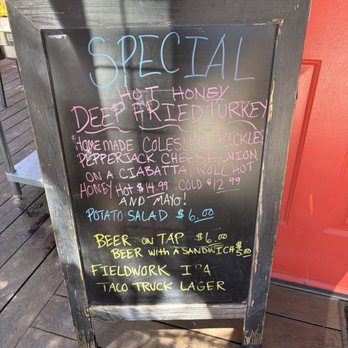 SPECIAL
HOT HONEY
DEEP FRIED TURKEY
HOMEMADE COLESLAW PICKLES
PEPPERJACK CHEESE UNION
ON A CIABATTA ROLL HOT
HONEY HOT $14.99 COLD $12.99
AND MAYO!
POTATO SALAD $6.00
BEER ON TAP $6.00
BEER WITH A SANDWICH $5.00
FIELDWORK IPA
TACO TRUCK LAGER